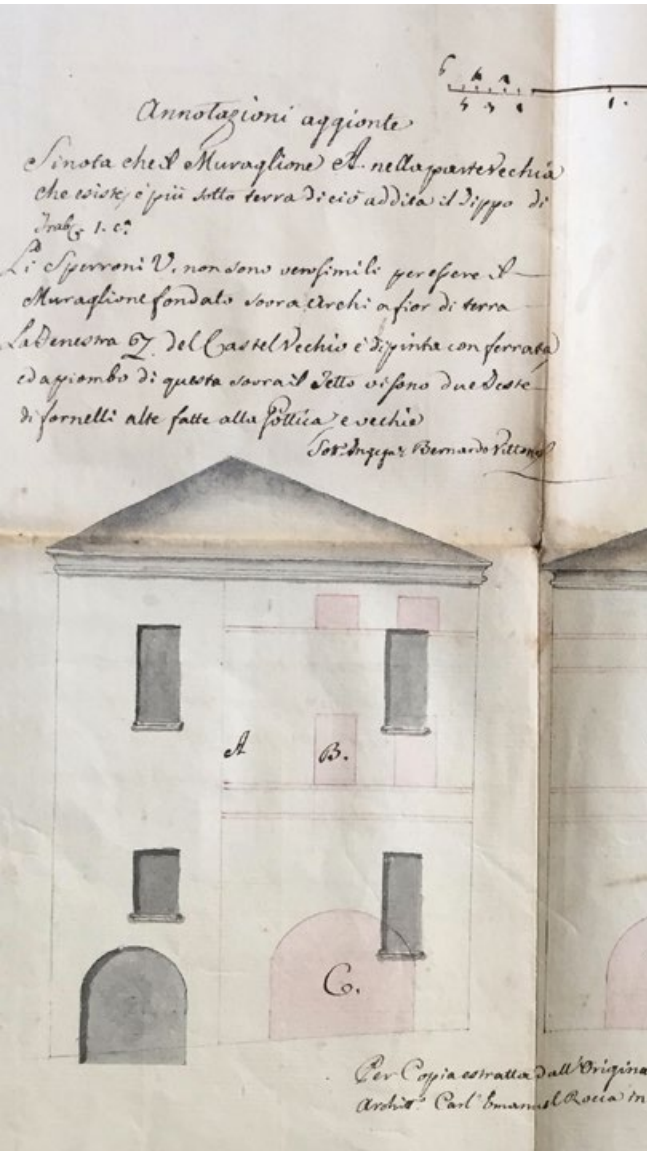 6 4 2
5 3 1
1.
Annotazioni aggionte
Si nota che il Muraglione A. nella parte Vecchia
che esiste, è più sotto terra di ciò addita il Tippo di
Trab. 1. c.a
Li Sperroni V. non sono verosimili per essere il
Muraglione fondato sovra Archi a fior di terra
La Fenestra Z. del Castel Vecchio è dipinta con ferrata
ed a piombo di questa sovra il Tetto vi sono due Teste
di fornelli alte fatte alla Gottica e vecchie
Sott. Ingeg.r Bernardo Vittone
A
B.
C.
Per Copia estratta dall'Origina
Archit.o Carl' Emanuel Rocca in